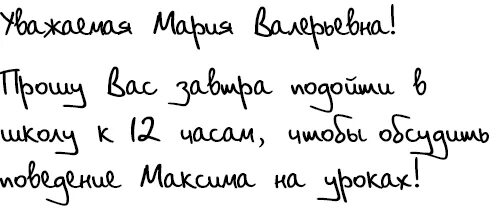 Уважаемая Мария Валерьевна!
Прошу Вас завтра подойти в
школу к 12 часам, чтобы обсудить
поведение Максима на уроках!